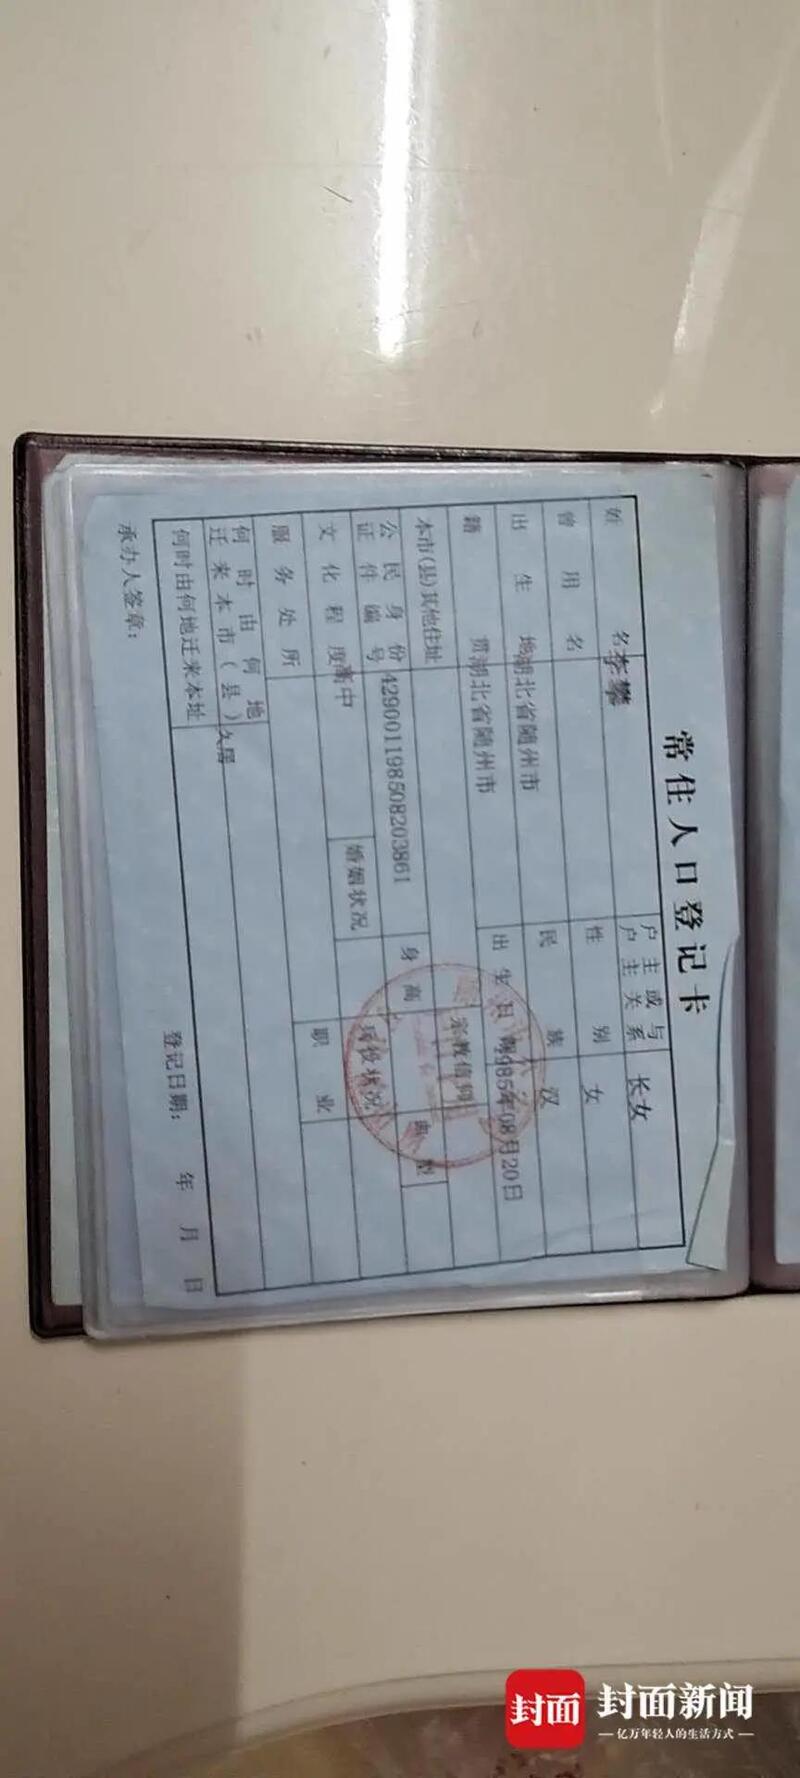 常住人口登记卡
姓名 李攀 户主或与户主关系 长女
曾用名 性别 女
出生地 湖北省随州市 民族 汉
籍贯 湖北省随州市 出生日期 1985年08月20日
本市(县)其他住址 宗教信仰
公民身份证件编号 429001198508203861 身高 血型
文化程度 高中 婚姻状况 兵役状况
服务处所 职业
何时由何地迁来本市(县) 久居
何时由何地迁来本址
承办人签章: 登记日期: 年 月 日
封面
封面新闻
亿万年轻人的生活方式